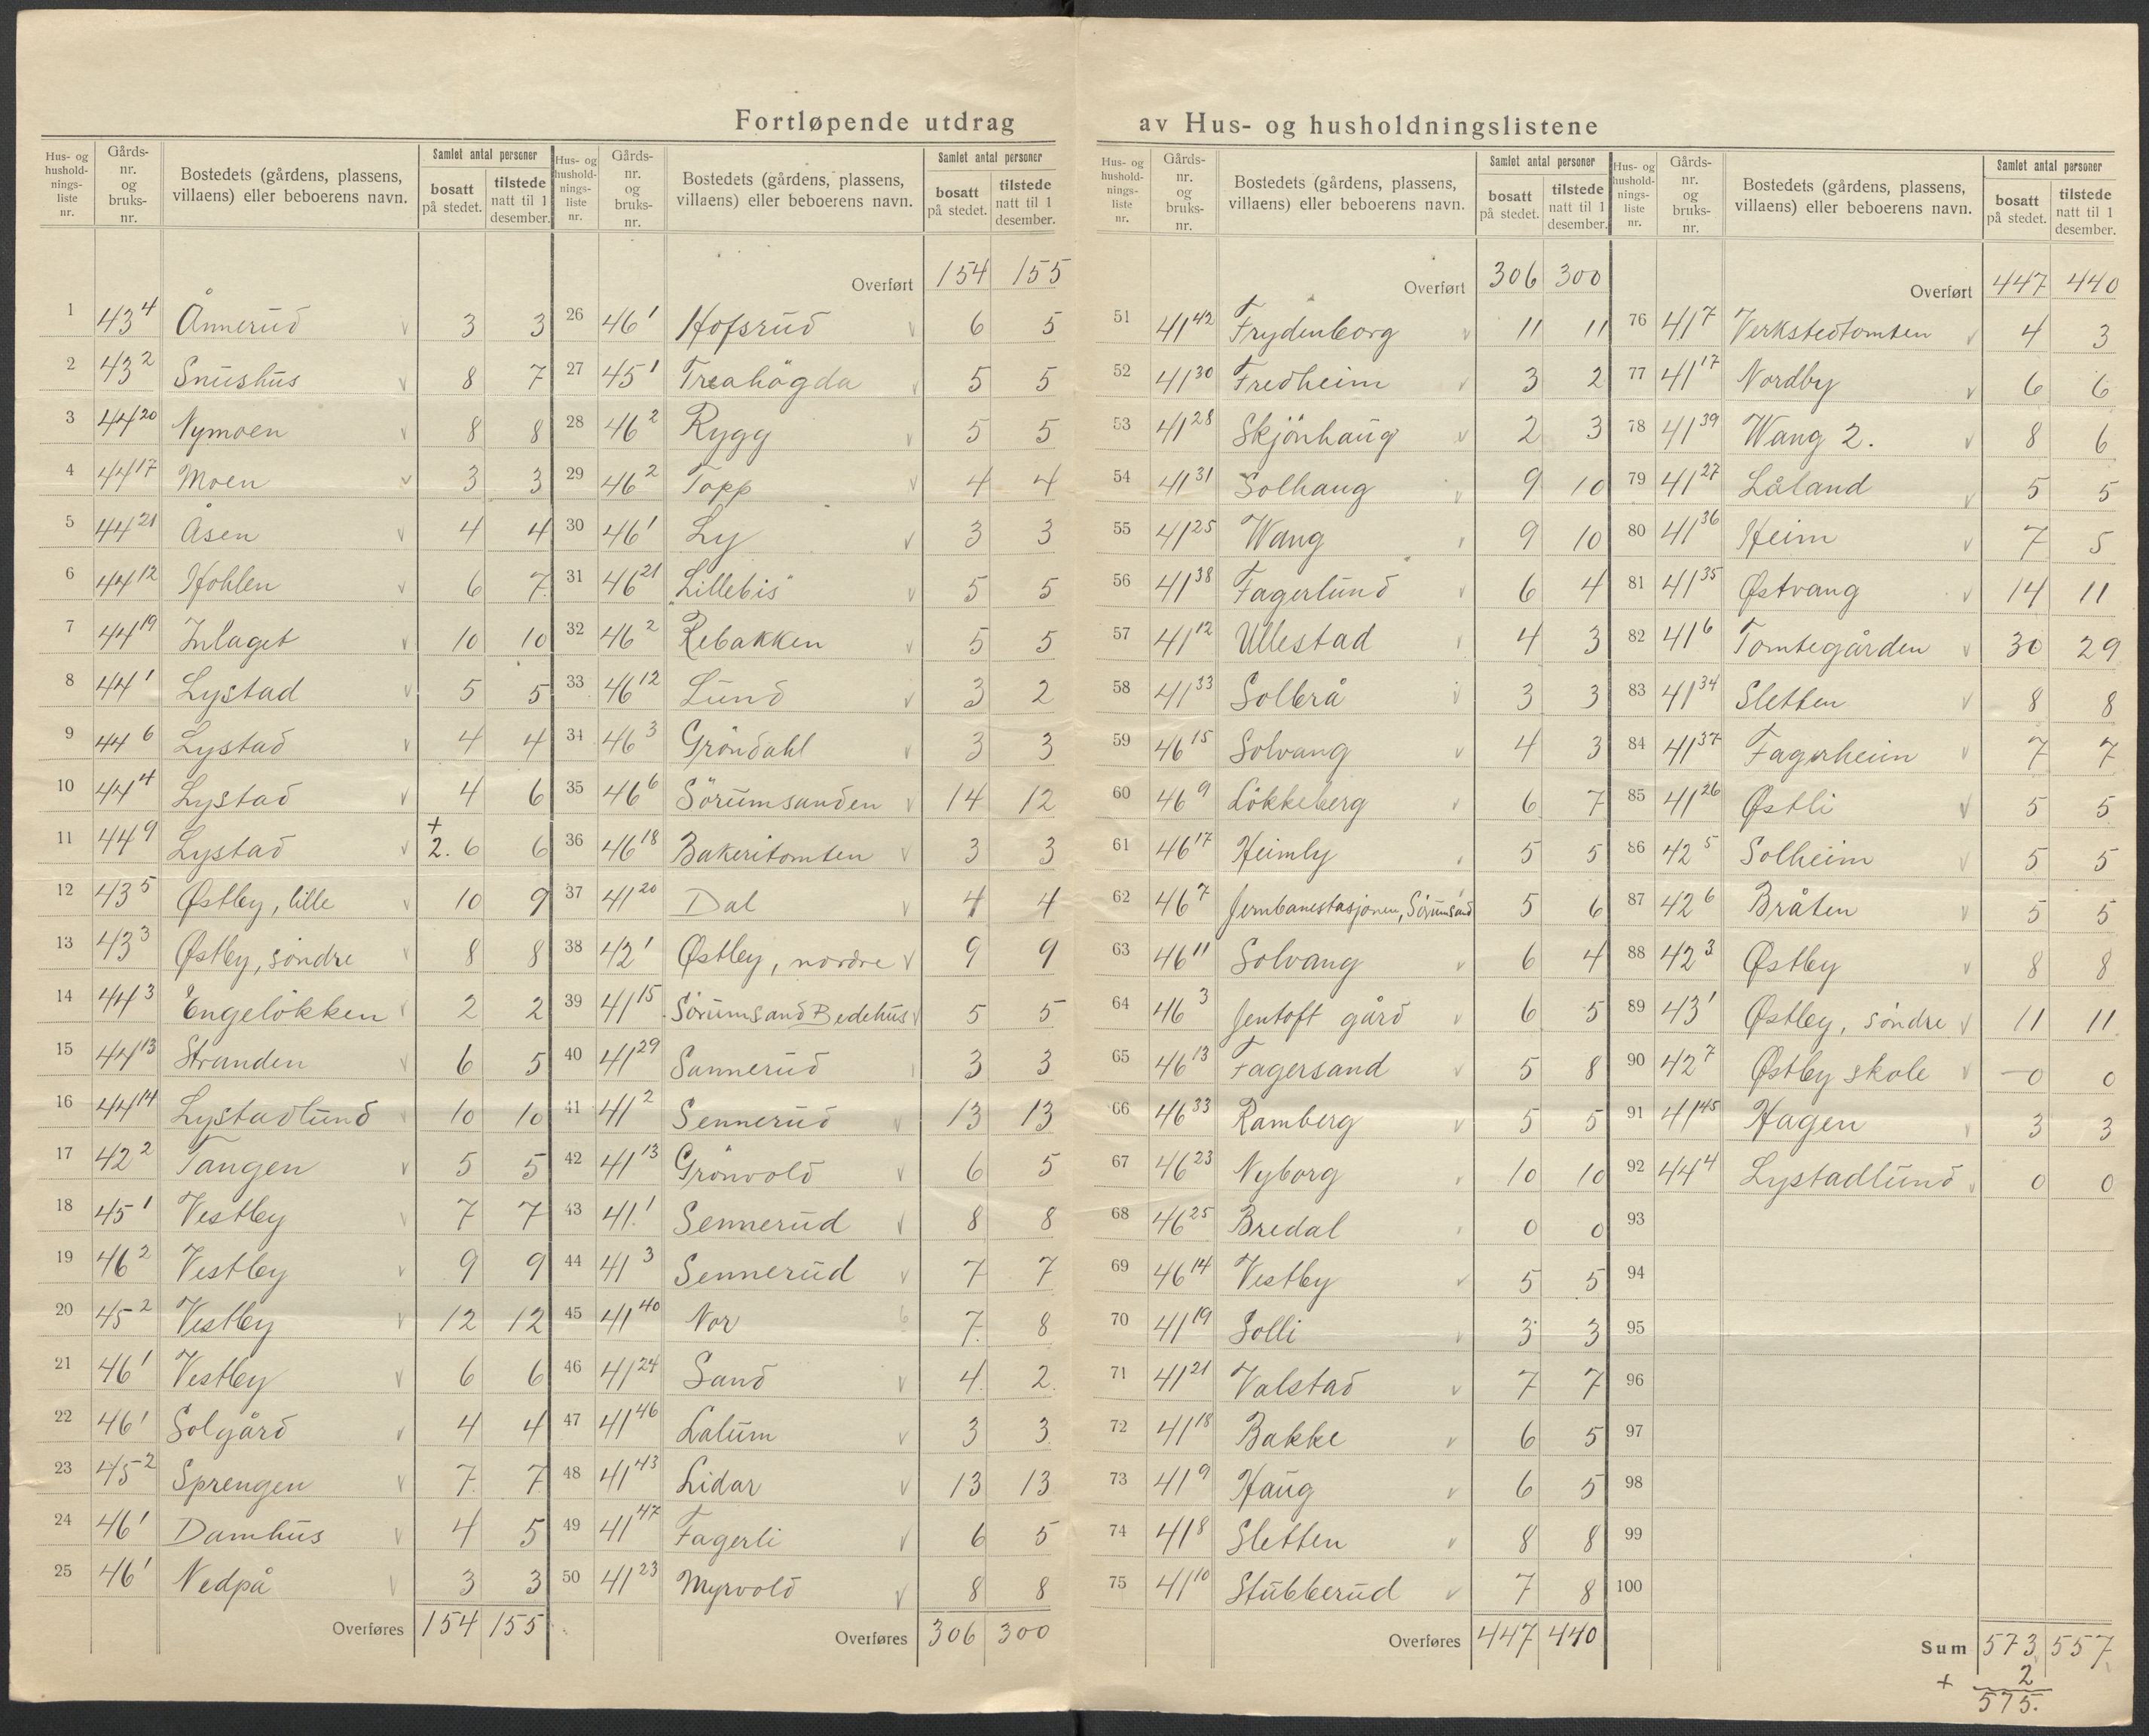 Fortløpende utdrag av Hus- og husholdningslistene
Hus- og husholdningsliste nr. | Gårdsnr. og bruksnr. | Bostedets (gårdens, plassens, villaens) eller beboerens navn. | Samlet antal personer: bosatt på stedet. | tilstede natt til 1 desember.
1 43 4 Ånnerud v 3 3
2 43 2 Snushus v 8 7
3 44 20 Nymoen v 8 8
4 44 17 Moen v 3 3
5 44 21 Åsen v 4 4
6 44 12 Hohlen v 6 7
7 44 19 Inlaget v 10 10
8 44 1 Lystad v 5 5
9 44 6 Lystad v 4 4
10 44 4 Lystad v 4 6
11 44 9 Lystad v + 2. 6 6
12 43 5 Østby, lille v 10 9
13 43 3 Østby, söndre v 8 8
14 44 3 Engelökken v 2 2
15 44 13 Stranden v 6 5
16 44 14 Lystadlund v 10 10
17 42 2 Tangen v 5 5
18 45 1 Vestby v 7 7
19 46 2 Vestby v 9 9
20 45 2 Vestby v 12 12
21 46 1 Vestby v 6 6
22 46 1 Solgård v 4 4
23 45 2 Sprengen v 7 7
24 46 1 Damhus v 4 5
25 46 1 Nedpå v 3 3
Overføres 154 155
Hus- og husholdningsliste nr. | Gårdsnr. og bruksnr. | Bostedets (gårdens, plassens, villaens) eller beboerens navn. | Samlet antal personer: bosatt på stedet. | tilstede natt til 1 desember.
Overført 154 155
26 46 1 Hofsrud v 6 5
27 45 1 Treahögda v 5 5
28 46 2 Rygg v 5 5
29 46 2 Topp v 4 4
30 46 1 Ly v 3 3
31 46 21 "Lillebis" v 5 5
32 46 2 Rebakken v 5 5
33 46 12 Lund v 3 2
34 46 3 Gröndahl v 3 3
35 46 6 Sörumsanden v 14 12
36 46 18 Bakeritomten v 3 3
37 41 20 Dal v 4 4
38 42 1 Østby, nordre v 9 9
39 41 15 Sörumsand Bedehus v 5 5
40 41 29 Sannerud 3 3
41 41 2 Sennerud v 13 13
42 41 13 Grönvold v 6 5
43 41 1 Sennerud v 8 8
44 41 3 Sennerud v 7 7
45 41 40 Nor 7 8
46 41 24 Sand v 4 2
47 41 46 Lalum v 3 3
48 41 43 Lidar v 13 13
49 41 47 Fagerli v 6 5
50 41 23 Myrvold v 8 8
Overføres 306 300
Hus- og husholdningsliste nr. | Gårdsnr. og bruksnr. | Bostedets (gårdens, plassens, villaens) eller beboerens navn. | Samlet antal personer: bosatt på stedet. | tilstede natt til 1 desember.
Overført 306 300
51 41 42 Frydenborg v 11 11
52 41 30 Fredheim v 3 2
53 41 28 Skjönhaug v 2 3
54 41 31 Solhaug v 9 10
55 41 25 Wang v 9 10
56 41 38 Fagerlund v 6 4
57 41 12 Ullestad v 4 3
58 41 33 Solbrå v 3 3
59 46 15 Solvang v 4 3
60 46 9 Lökkeberg v 6 7
61 46 17 Heimly v 5 5
62 46 7 Jernbanestasjonen, Sörumsand 5 6
63 46 11 Solvang v 6 4
64 46 3 Jentoft gård v 6 5
65 46 13 Fagersand v 5 8
66 46 33 Ramberg v 5 5
67 46 23 Nyborg v 10 10
68 46 25 Bredal v 0 0
69 46 14 Vestby v 5 5
70 41 19 Solli v 3 3
71 41 21 Valstad v 7 7
72 41 18 Bakke v 6 5
73 41 9 Haug v 6 5
74 41 8 Sletten v 8 8
75 41 10 Stubberud v 7 8
Overføres 447 440
Hus- og husholdningsliste nr. | Gårdsnr. og bruksnr. | Bostedets (gårdens, plassens, villaens) eller beboerens navn. | Samlet antal personer: bosatt på stedet. | tilstede natt til 1 desember.
Overført 447 440
76 41 7 Verkstedtomten v 4 3
77 41 17 Nordby v 6 6
78 41 39 Wang 2. v 8 6
79 41 27 Låland v 5 5
80 41 36 Heim v 7 5
81 41 35 Østvang v 14 11
82 41 6 Tomtegården v 30 29
83 41 34 Sletten v 8 8
84 41 37 Fagerheim v 7 7
85 41 26 Østli v 5 5
86 42 5 Solheim v 5 5
87 42 6 Bråten v 5 5
88 42 3 Østby v 8 8
89 43 1 Østby, söndre v 11 11
90 42 7 Østby skole v 0 0
91 41 45 Hagen v 3 3
92 44 4 Lystadlund v 0 0
93
94
95
96
97
98
99
100
Sum 573 557
+ 2
575.